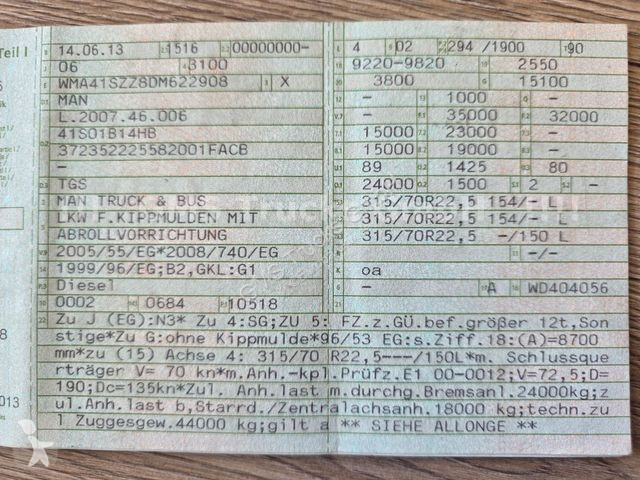 Teil I
B 14.06.13 2.1 1516 2.2 00000000-
J 06 4 3100
E WMA41SZZ8DM622908 3 X
MAN
L.2007.46.006
41S01B14HB
372352225582001FACB
-
D.3 TGS
2 MAN TRUCK & BUS
5 LKW F.KIPPMULDEN MIT
ABROLLVORRICHTUNG
V.9 2005/55/EG*2008/740/EG
14 1999/96/EG;B2,GKL:G1
P.3 Diesel
10 0002 14.1 0684 P.1 10518
L 4 9 02 P.2/P.4 294 /1900 T 90
18 9220-9820 19 2550
20 3800 G 15100
12 - 13 1000 Q -
V.7 - F.1 35000 F.2 32000
7.1 15000 7.2 23000 7.3 -
8.1 15000 8.2 19000 8.3 -
U.1 89 U.2 1425 U.3 80
O.1 24000 O.2 1500 S.1 2 S.2 -
15.1 315/70R22,5 154/- L
15.2 315/70R22,5 154/- L
15.3 315/70R22,5 -/150 L
R -/-
K oa
6 - 17 A 16 WD404056
21
22 Zu J (EG):N3* Zu 4:SG;ZU 5: FZ.z.GÜ.bef.größer 12t,Son
stige*Zu G:ohne Kippmulde*96/53 EG:s.Ziff.18:(A)=8700
mm*zu (15) Achse 4: 315/70 R22,5---/150L*m. Schlussque
rträger V= 70 kn*m.Anh.-kpl.Prüfz.E1 00-0012;V=72,5;D=
190;Dc=135kn*Zul. Anh.last m.durchg.Bremsanl.24000kg;z
ul.Anh.last b,Starrd./Zentralachsanh.18000 kg;techn.zu
l Zuggesgew.44000 kg;gilt a ** SIEHE ALLONGE **
8
013